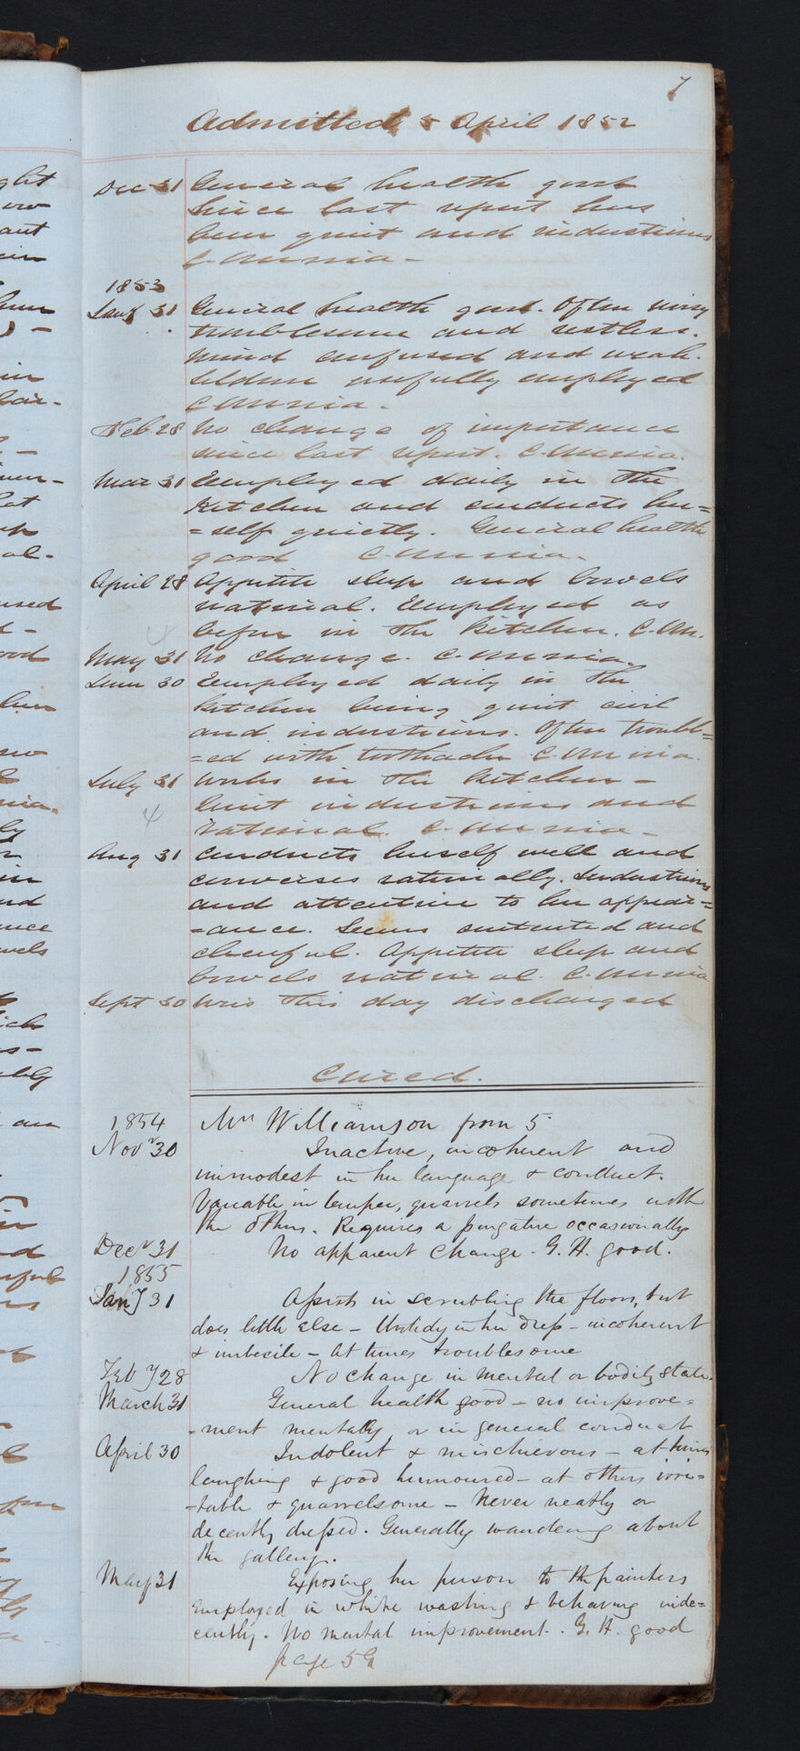 7
Admitted 5 April 1852
Dec 31 General health good
Since last report has
been quiet and industrious
C. Mania -
1853
Jany 31 General health good. Often very
troublesome and restless.
Mind confused and weak.
Seldom usefully employed
C Mania.
Feb 28 No change of importance
since last report. C. Mania.
Mar 31 Employed daily in the
kitchen and conducts her=
=self quietly. General health
good C Mania.
April 28 Appetite sleep and bowels
natural. Employed as
before in the kitchen. C. M.
May 31 No change. C. Mania.
June 30 Employed daily in the
kitchen being quiet civil
and industrious. Often troubl=
=ed with toothache C Mania.
July 31 Works in the kitchen -
Quiet industrious and
rational. C. Mania -
Aug 31 Conducts herself well and
converses rationally. Industrious
and attentive to her appear=
=ance. Seems contented and
cheerful. Appetite sleep and
bowels natural. C. Mania
Sept 30 Was this day discharged
Cured.
1854 Mrs Williamson from 5
Novr 30 Inactive, incoherent and
immodest in her language & conduct.
Variable in temper, quarrels sometimes with
the others. Requires a purgative occasionally
Decr 31 No apparent change - G. H. good.
1855
Jany 31 Assists in scrubbing the floors, but
does little else - Untidy in her dress - incoherent
& imbecile - at times troublesome
Feby 28 No change in mental or bodily state.
March 31 General health good - no improve=
-ment mentally or in general conduct
April 30 Indolent & mischievous - at times
laughing & good humoured - at others irri=
-table & quarrelsome - Never neatly or
decently dressed. Generally wandering about
the gallery.
May 31 Exposing her person to the painters
employed in white washing & behaving inde=
cently. No mental improvement. G. H. good
page 59